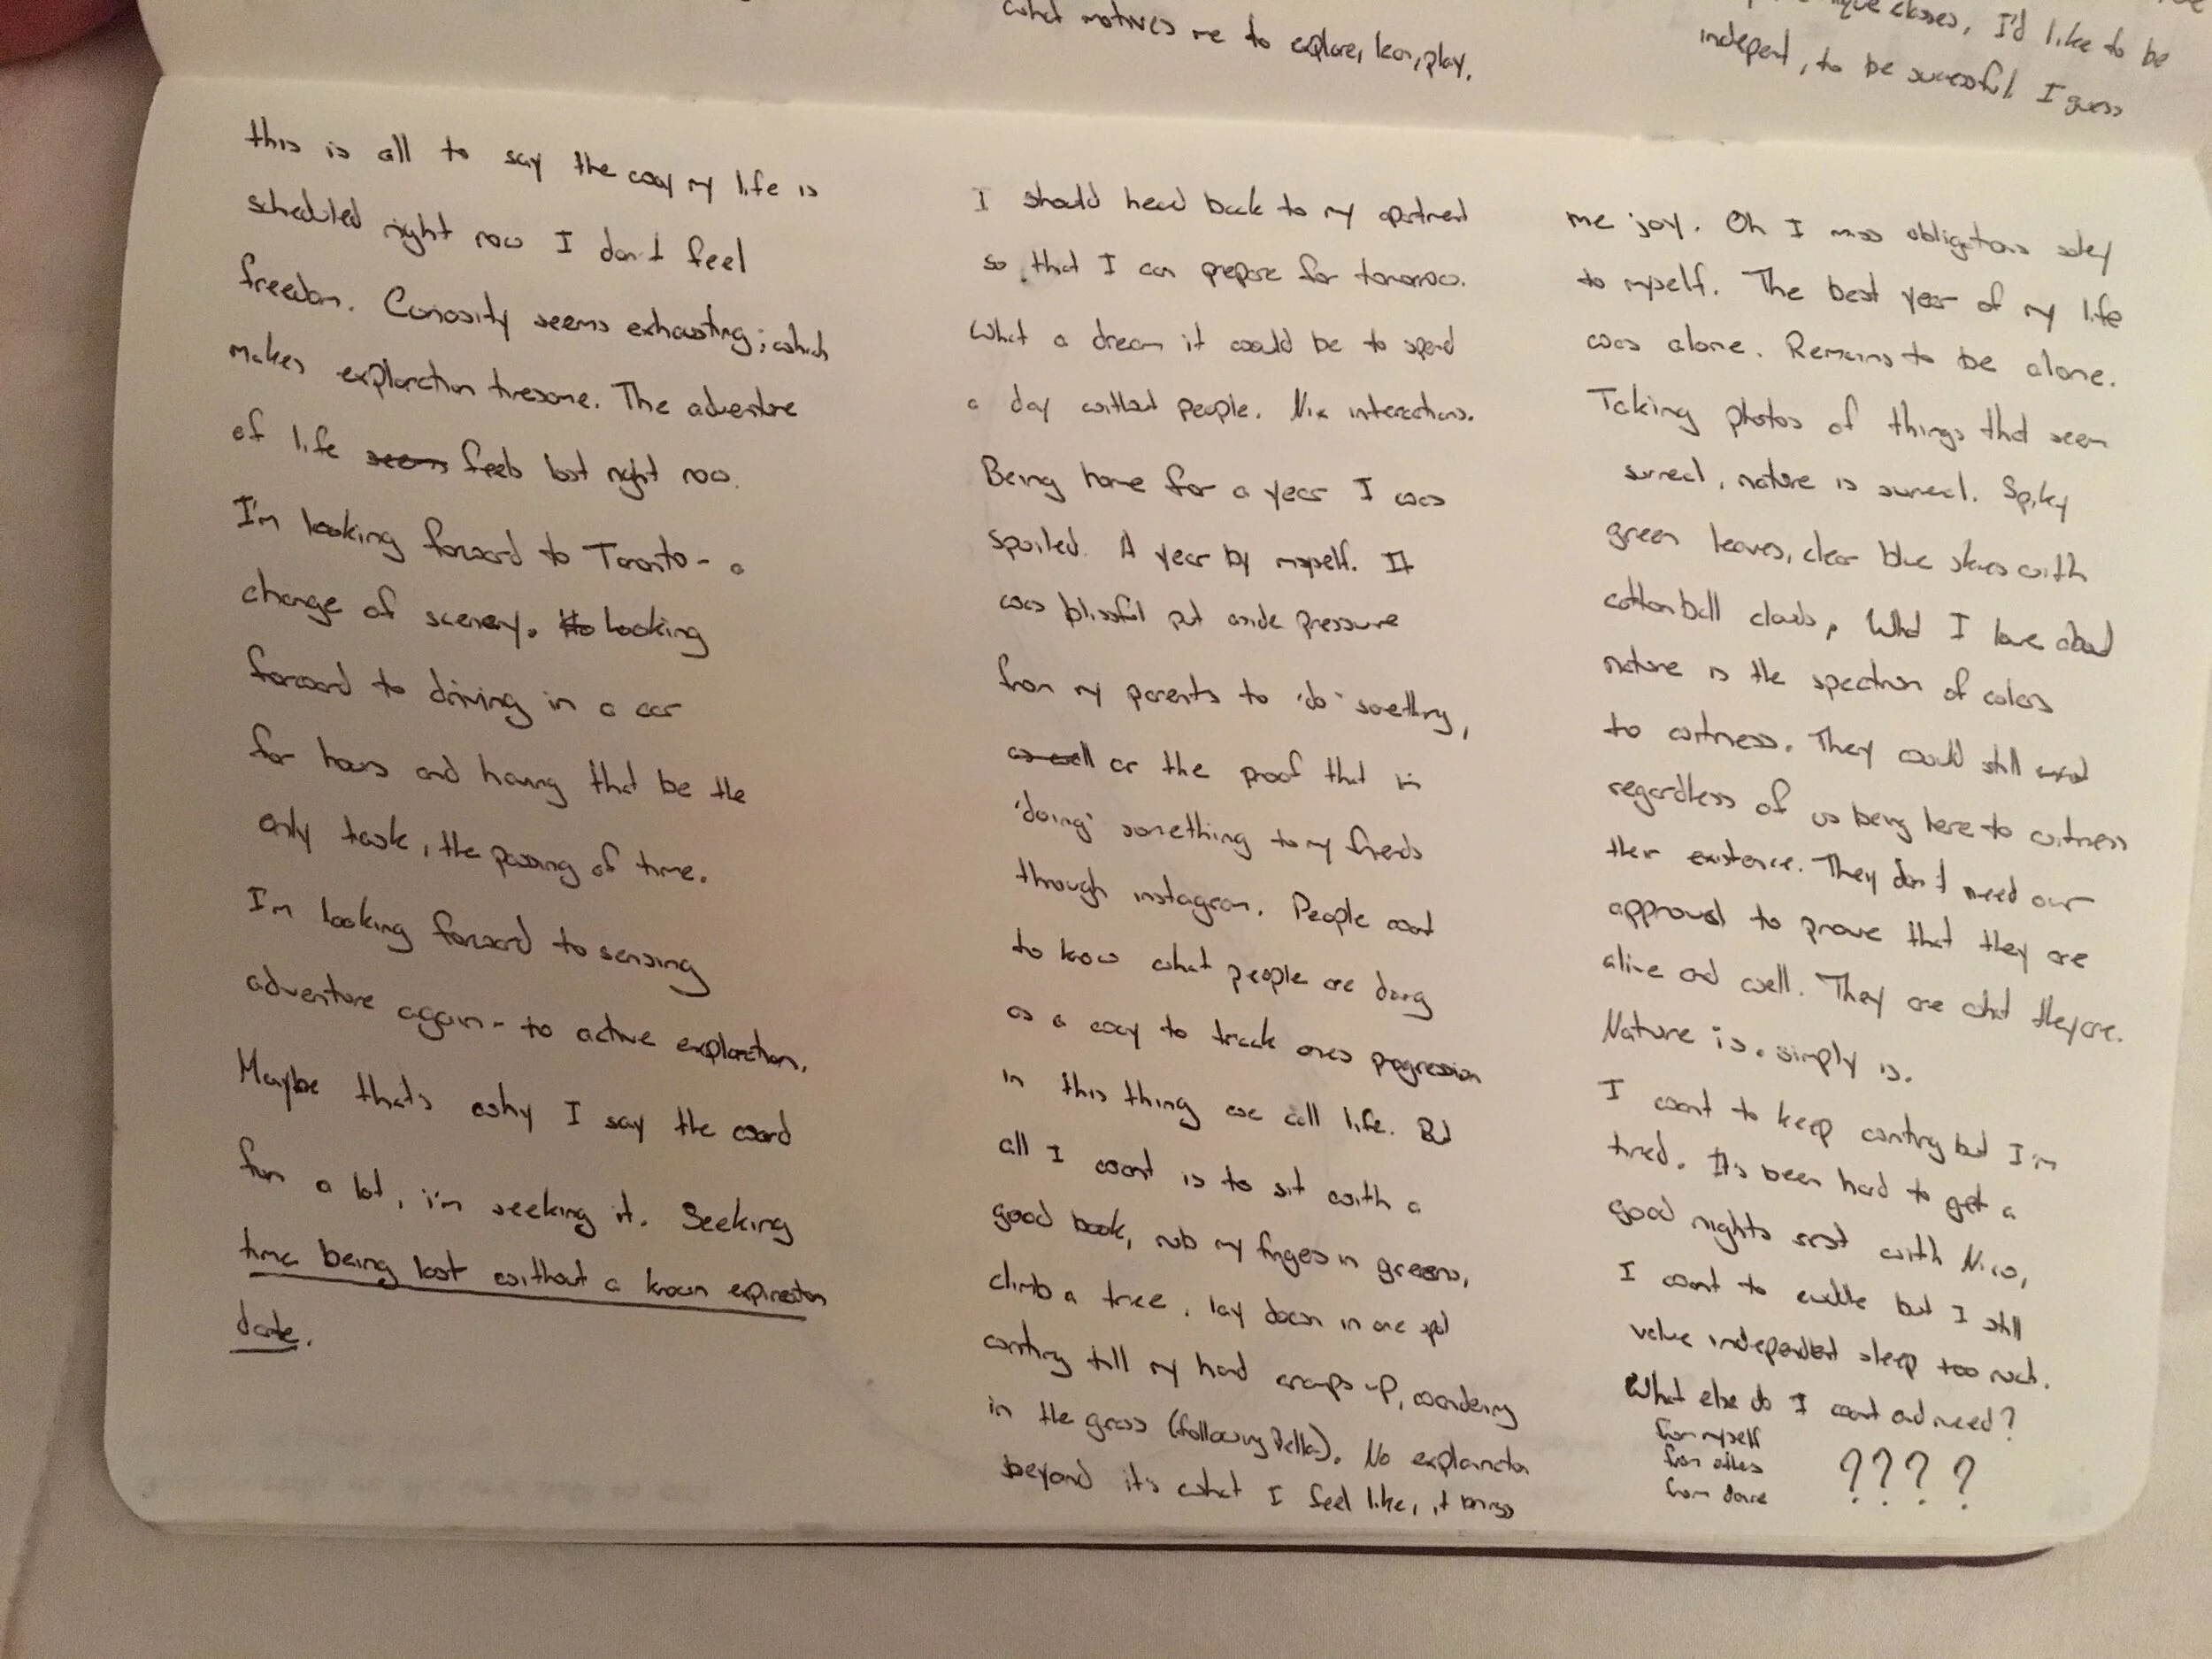 what motives me to explore, learn, play.
classes, I'd like to be
indepent, to be sucessful I guess
this is all to say the way my life is
scheduled right now I don't feel
freedom. Curiosity seems exhausting; which
makes exploration tiresome. The adventure
of life seems feels lost right now.
I'm looking forward to Toronto - a
change of scenery. looking
forward to driving in a car
for hours and having that be the
only task, the passing of time.
I'm looking forward to sensing
adventure again - to active exploration.
Maybe that's why I say the word
fun a lot, i'm seeking it. Seeking
time being lost without a known expiration
date.
I should head back to my apartment
so that I can prepare for tomorrow.
What a dream it would be to spend
a day without people. Nix interactions.
Being home for a year I was
spoiled. A year by myself. It
was blissful put aside pressure
from my parents to 'do' something,
as well or the proof that i'm
'doing' something to my friends
through instagram. People want
to know what people are doing
as a way to track ones progression
in this thing we call life. But
all I want is to sit with a
good book, rub my fingers in greens,
climb a tree, lay down in one spot
writing till my hand cramps up, wandering
in the grass (following Bella). No explanation
beyond it's what I feel like, it brings
me joy. Oh I miss obligations solely
to myself. The best year of my life
was alone. Remains to be alone.
Taking photos of things that seem
surreal, nature is surreal. Spiky
green leaves, clear blue skies with
cotton ball clouds. What I love about
nature is the spectrum of colors
to witness. They would still exist
regardless of us being here to witness
their existence. They don't need our
approval to prove that they are
alive and well. They are what they are.
Nature is. simply is.
I want to keep writing but I'm
tired. It's been hard to get a
good nights rest with Nico,
I want to cuddle but I still
value independent sleep too much.
What else do I want and need?
from myself
from others
from dance
????